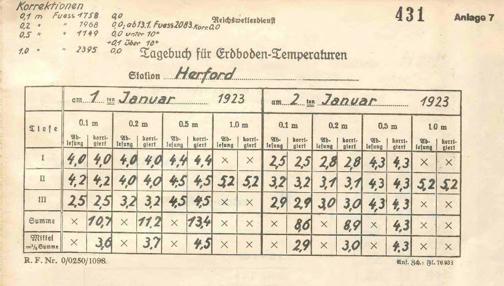 Korrektionen
0,1 m Fuess 1758 0,0
0,2 " " 1968 0,0; ab 13.1. Fuess 2083 Korr 0,0
0,5 " " 1149 0,0 unter 10°
+0,1 über 10°
1,0 " " 2395 0,0
Reichswetterdienst
431
Anlage 7
Tagebuch für Erdboden-Temperaturen
Station Herford
am 1 ten Januar 1923 am 2 ten Januar 1923
Tiefe 0.1 m 0.2 m 0.5 m 1.0 m 0.1 m 0.2 m 0.5 m 1.0 m
Ab- korri- Ab- korri- Ab- korri- Ab- korri- Ab- korri- Ab- korri- Ab- korri- Ab- korri-
lesung giert lesung giert lesung giert lesung giert lesung giert lesung giert lesung giert lesung giert
I 4,0 4,0 4,0 4,0 4,4 4,4 × × 2,5 2,5 2,8 2,8 4,3 4,3 × ×
II 4,2 4,2 4,0 4,0 4,5 4,5 5,2 5,2 3,2 3,2 3,1 3,1 4,3 4,3 5,2 5,2
III 2,5 2,5 3,2 3,2 4,5 4,5 × × 2,9 2,9 3,0 3,0 4,3 4,3 × ×
Summe × 10,7 × 11,2 × 13,4 × × × 8,6 × 8,9 × 4,3 × ×
Mittel × 3,6 × 3,7 × 4,5 × × × 2,9 × 3,0 × 4,3 × ×
R. F. Nr. 0/0250/1098.